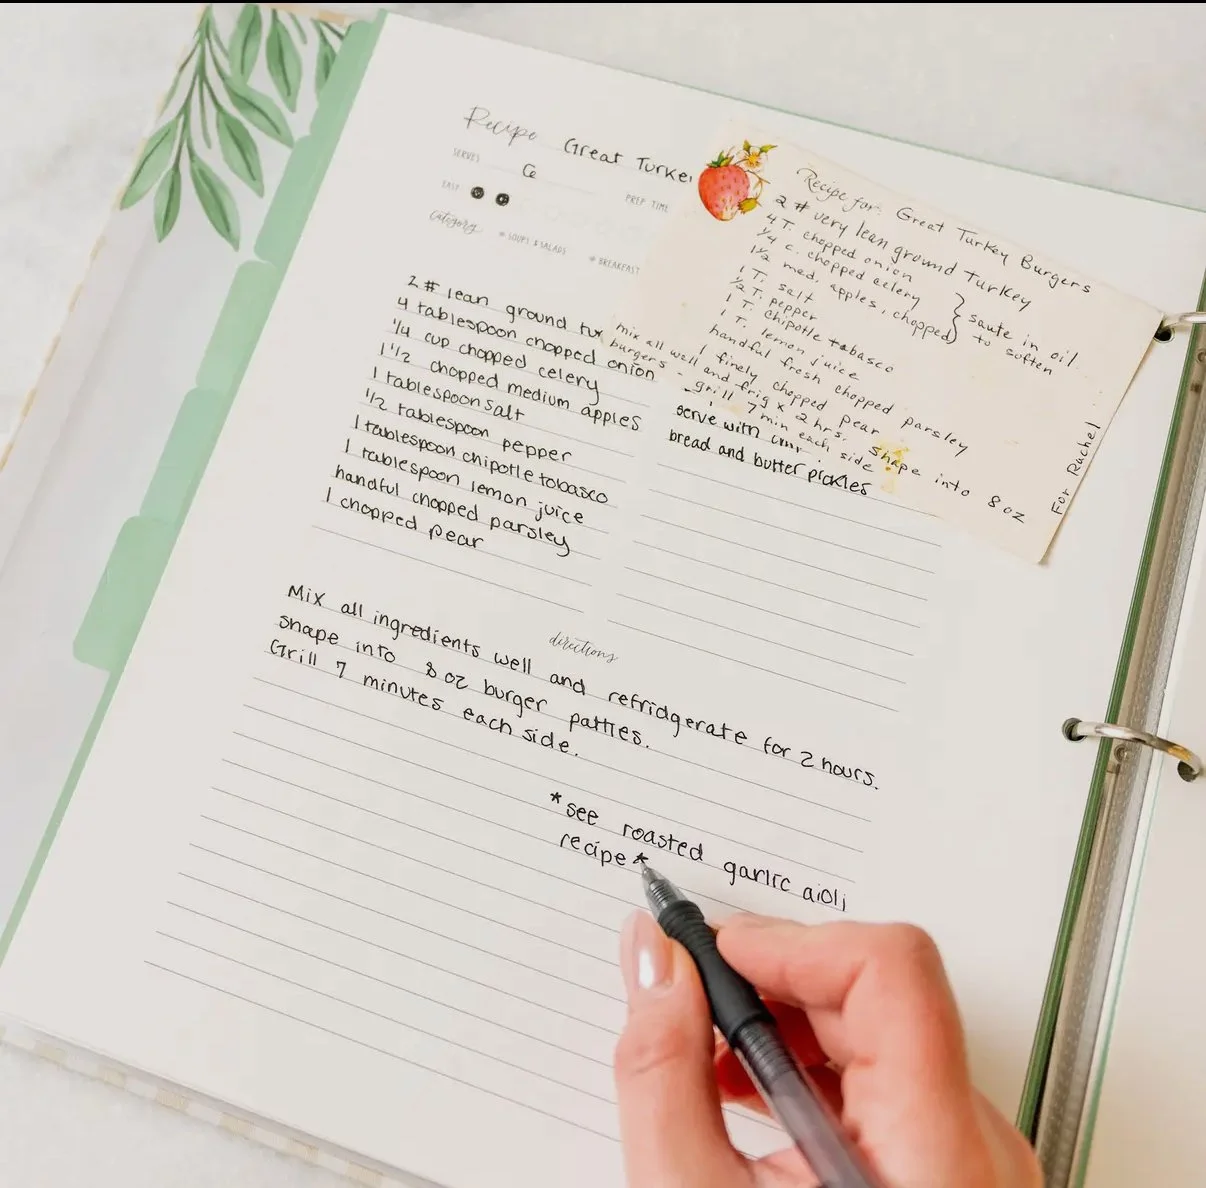 Recipe Great Turke
SERVES 6
EASY
PREP TIME
category
SOUPS & SALADS
BREAKFAST
2 # lean ground tur
4 tablespoon chopped onion
1/4 cup chopped celery
1 1/2 chopped medium apples
1 tablespoon salt
1/2 tablespoon pepper
1 tablespoon chipotle tobasco
1 tablespoon lemon juice
handful chopped parsley
1 chopped pear
serve with
bread and butter pickles
Recipe for: Great Turkey Burgers
2 # very lean ground turkey
4 T. chopped onion
1/4 c. chopped celery
1 1/2 med. apples, chopped
saute in oil
to soften
1 T. salt
1/2 T. pepper
1 T. chipotle tobasco
1 T. lemon juice
handful fresh chopped parsley
1 finely chopped pear
mix all well and frig x 2 hrs. shape into 8 oz
burgers - grill 7 min each side
For Rachel
directions
Mix all ingredients well and refridgerate for 2 hours.
shape into 8 oz burger patties.
Grill 7 minutes each side.
*see roasted garlic aioli
recipe*